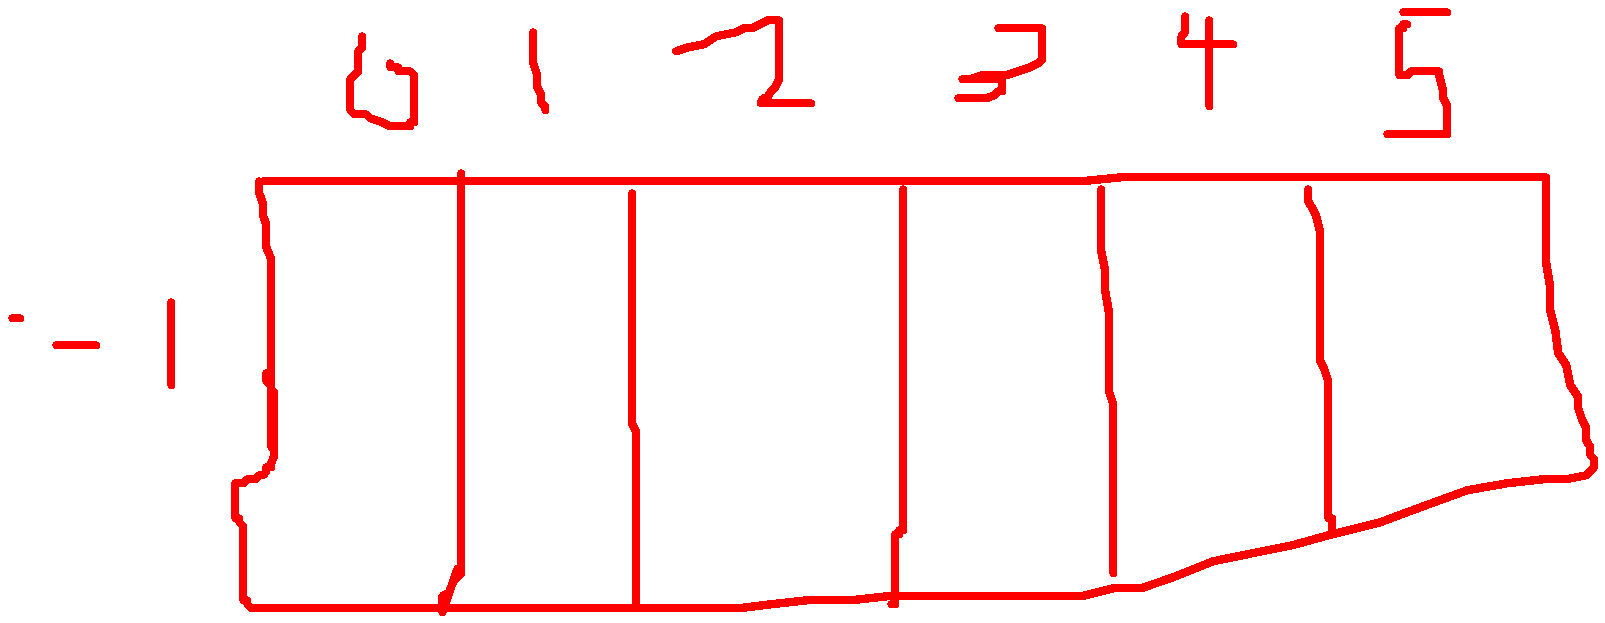 0 1 2 3 4 5
-1